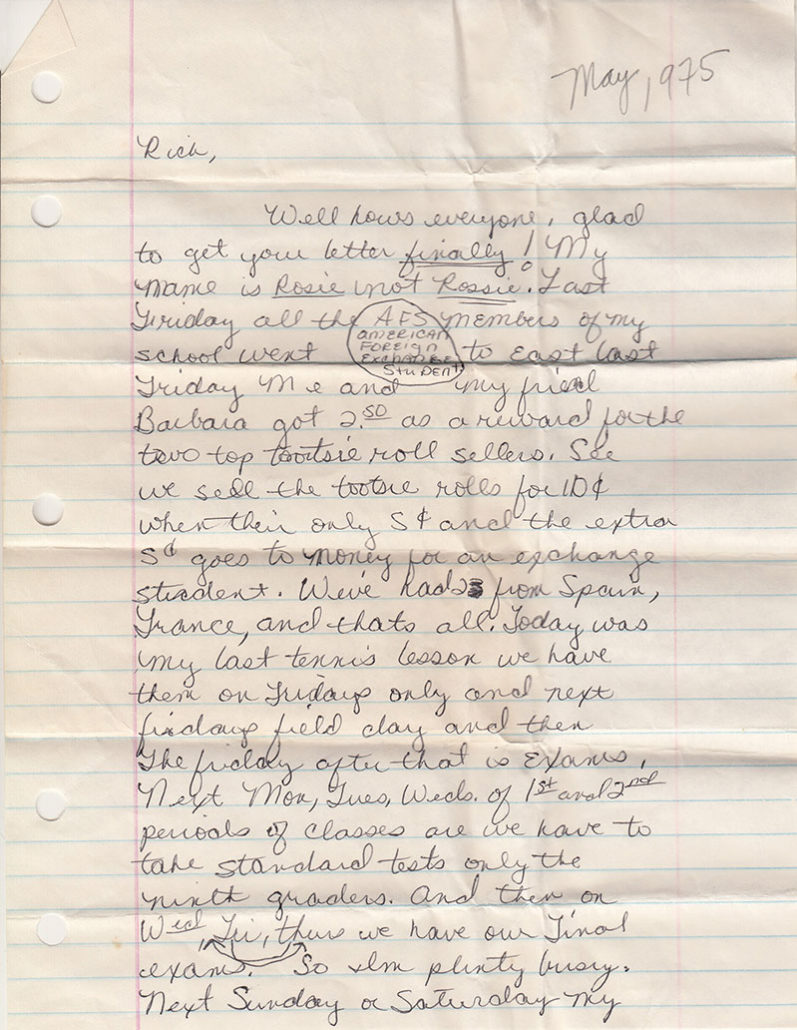 May, 1975
Rich,
Well hows everyone, glad
to get your letter finally! My
name is Rosie not Rossie. Last
Friday all the AFS members of my
AMERICAN
FOREIGN
EXCHANGE
STUDENT
school went to East last
Friday Me and my friend
Barbara got 2.50 as a reward for the
two top tootsie roll sellers. See
we sell the tootsie rolls for 10¢
when their only 5¢ and the extra
5¢ goes to money for an exchange
student. We've had 2 from Spain,
France, and thats all. Today was
my last tennis lesson we have
them on Fridays only and next
fridays field day and then
The friday after that is Exams.
Next Mon, Tues, Weds. of 1st and 2nd
periods of classes are we have to
take standard tests only the
ninth graders. And then on
Wed, Fri, thurs we have our Final
exams. So I'm plenty busy.
Next Sunday or Saturday my